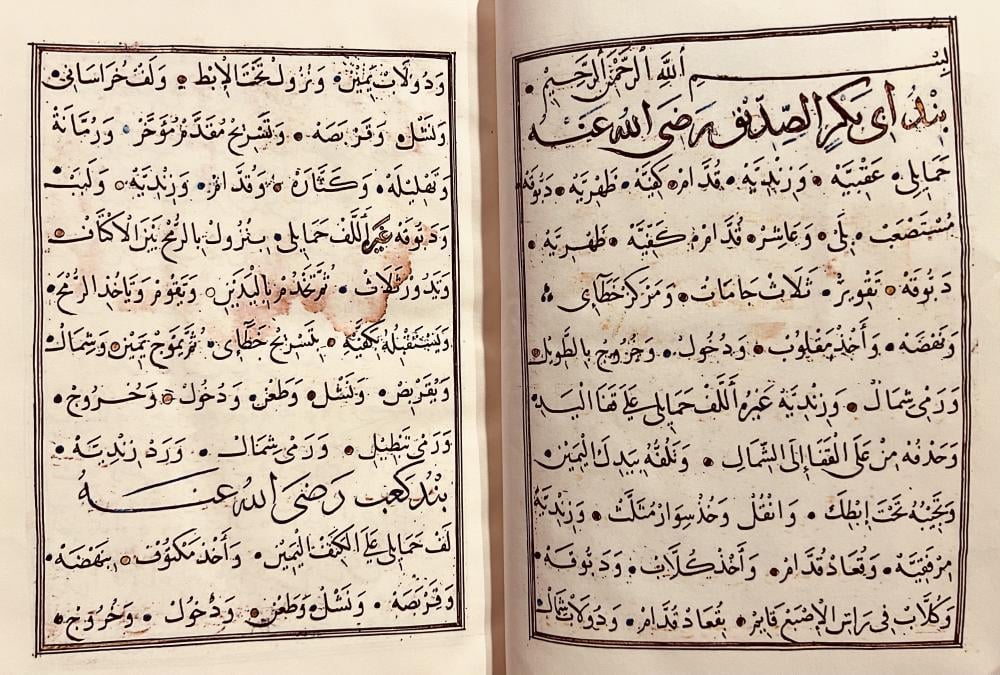 بسم الله الرحمن الرحيم
بند ابى بكر الصديق رضى الله عنه
حمايلى عقبيه وزنديه قدام كفيه ظهريه دبوقه
مستصعب بلى وعاشر قدام كفيه ظهريه
دبوقه تقوير ثلاث جامات ومركز خطاى
ونهضه وأخذ مقلوب ودخول وخروج بالطويل
ورمى شمال وزنديه غيره أللف حمايلى على قفا اليد
وحذفه من على القفا إلى الشمال وتلفه بيدك اليمين
وتجيبه تحت ابطك وانقل وخذ سوار مثلث وزنديه
مرفقيه وقعاد قدام وأخذ كلاب ودبوقه
وكلاب فى راس الإصبع قايم بقعاد قدام ودولاب شمال
ودولاب يمين ونزول تحت الإبط ولف خراسانى
ونشل وقربصه وتسريح مقدم مؤخر ورمانة
وتهليله وكتان وقدام وزنديه ولبب
ودبوقه غيره أللف حمايلى بنزول بالرمح بين الاكتاف
ويدور ثلاث ثم تخدم باليدين وتقوم وتاخذ الرمح
وتستقبله بكفيه بتسريح خطاى ثم يموج يمين وشمال
وبقربص ونشل وطعن ودخول وخروج
ورمى تبطيل ورمى شمال ورد زنديته
بند كعب رضى الله عنه
لف حمايلى على الكتف اليمين وأخذ مكتوف بنهضه
وقربصه ونشل وطعن ودخول وخروج